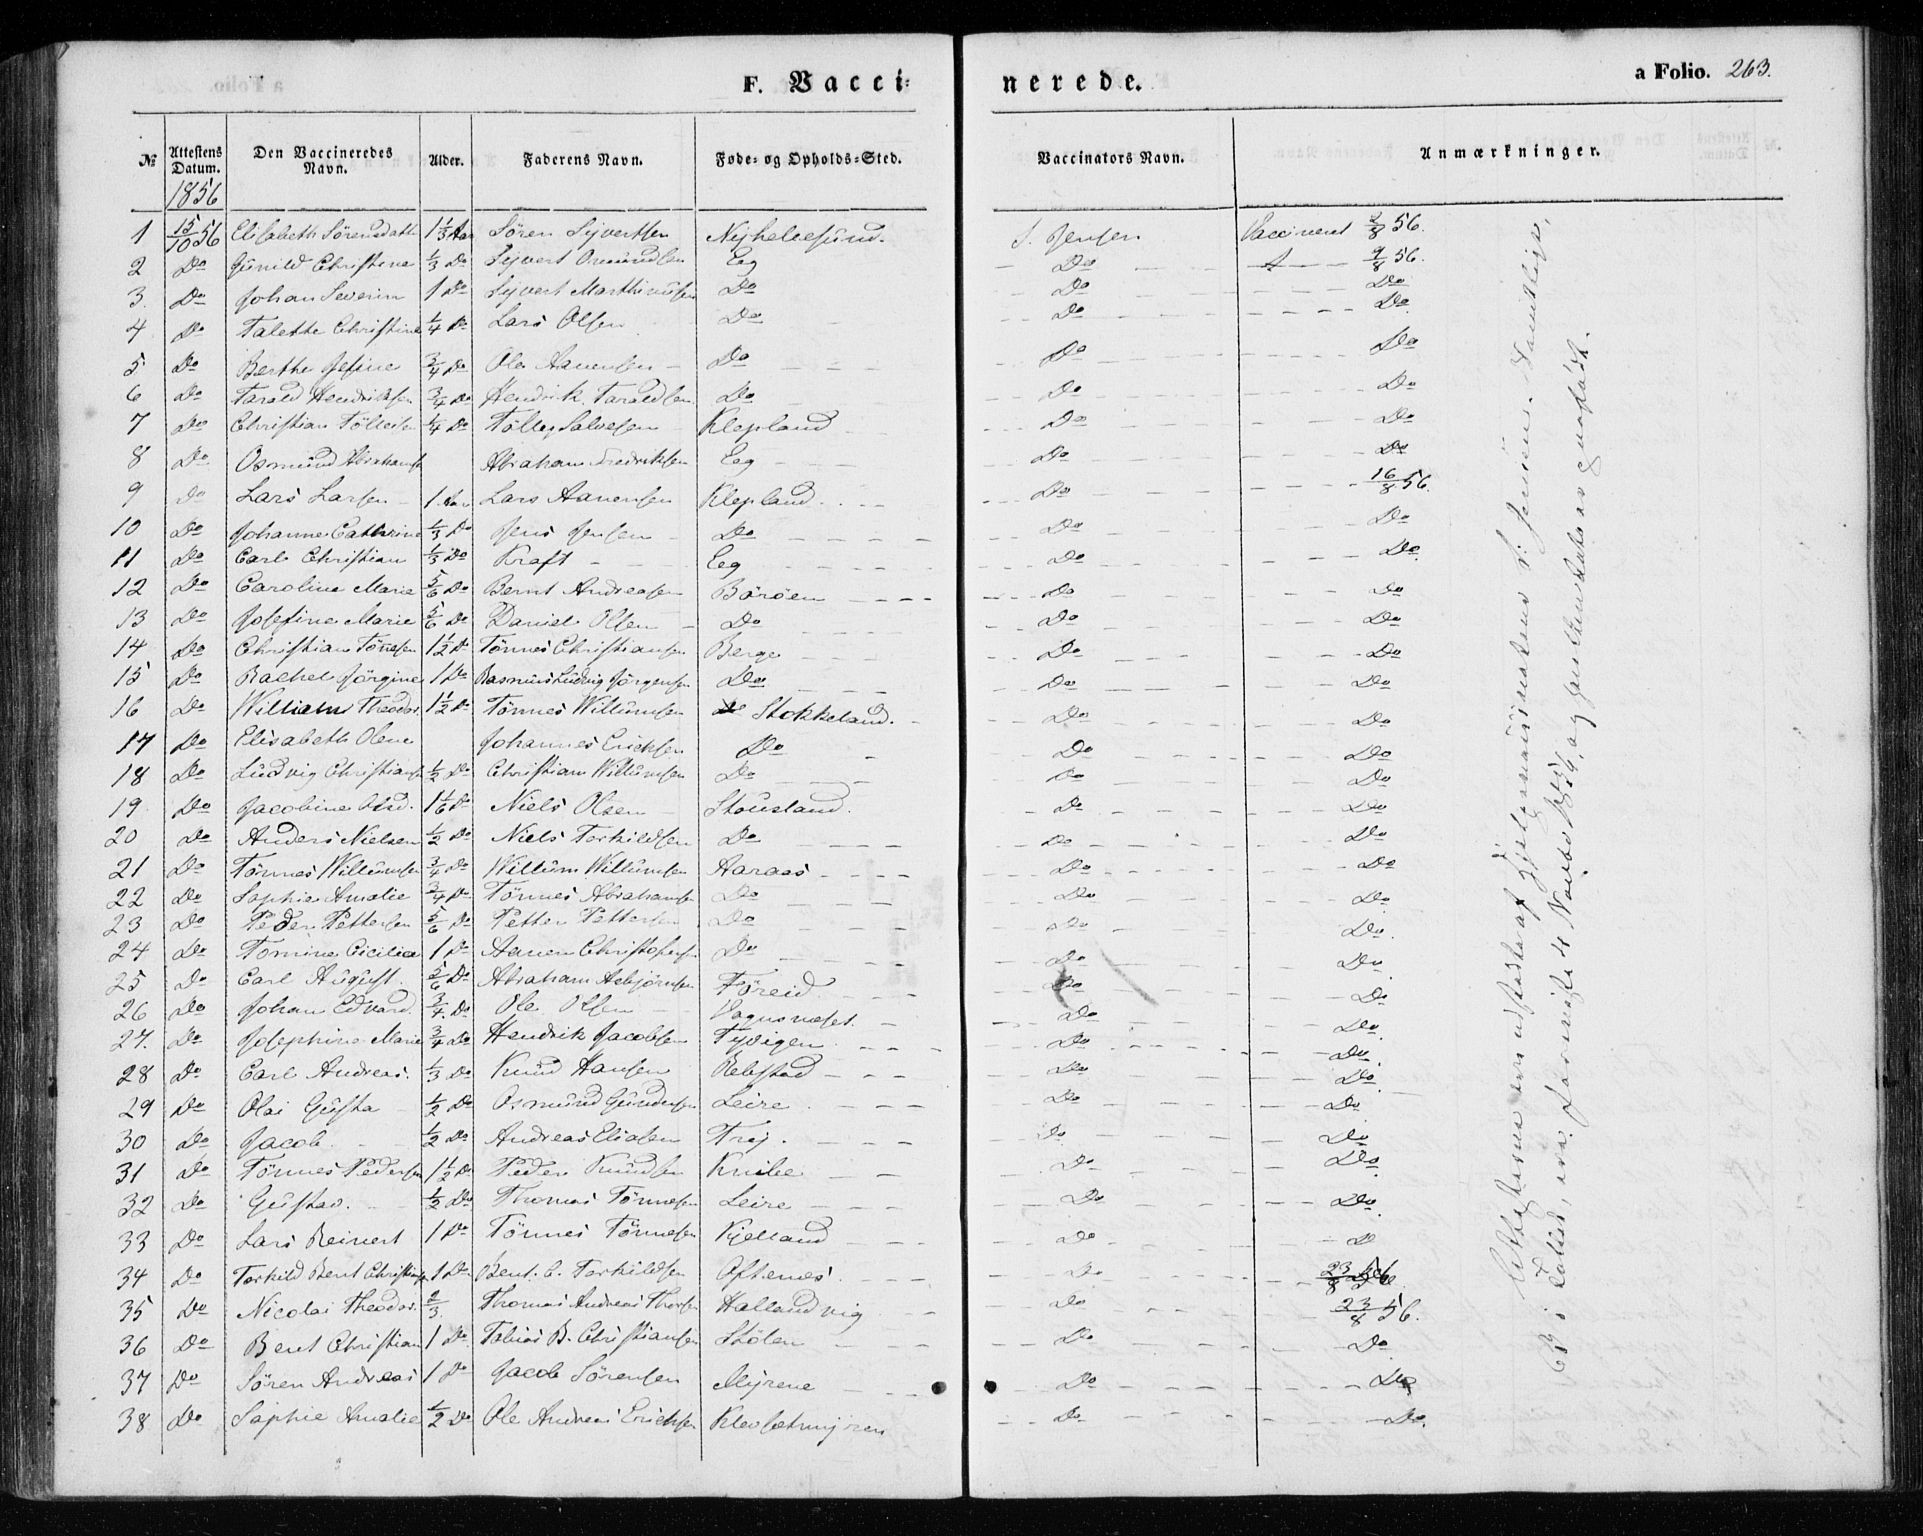 F. Vacci=
nerede.
a Folio. 263.
№ Attestens Datum. Den Vaccineredes Navn. Alder. Faderens Navn. Føde= og Opholds=Sted. Vaccinators Navn. Anmærkninger.
1856
1 15/10 56 Elisabeth Sörensdatt 1 1/3 Aar Sören Syvertsen Nyhellesund. S. Jensen Vaccineret 2/8 56.
2 Do Gunild Christine 1/3 Do Syvert Osmundsen Eeg Do 9/8 56.
3 Do Johan Severin 1 Do Syvert Marthinusen Do Do Do
4 Do Talette Christine 1/4 Do Lars Olsen Do Do Do
5 Do Berthe Gesine 3/4 Do Ole Aanensen Do Do Do
6 Do Tarald Hendriksen 3/4 Do Hendrik Taraldsen Do Do Do
7 Do Christian Töllesen 1/4 Do Tölleg Salvesen Klepland Do Do
8 Do Osmund Abrahams Abraham Fredriksen Eeg Do Do
9 Do Lars Larsen 1 Aar Lars Aanensen Klepland Do 16/8 56.
10 Do Johanne Cathrine 1/3 Do Jens Jensen Do Do Do
11 Do Carl Christian 1/3 Do Kraft Eeg Do Do
12 Do Caroline Marie 5/6 Do Bernt Andreasen Boröen Do Do
13 Do Josefine Marie 5/6 Do Daniel Olsen Do Do Do
14 Do Christian Tönesen 1 1/2 Do Tönnes Christiansen Berge Do Do
15 Do Rachel Jörgine 1 Do Rasmus Ludvig Jörgensen Do Do Do
16 Do William Theodor. 1 1/2 Do Tönnes Willumsen Stokkeland. Do Do
17 Do Elisabeth Olene Johannes Ericksen Do Do Do
18 Do Ludvig Christians 1/2 Do Christian Willumsen Do Do Do
19 Do Jacobine 1 1/6 Do Niels Olsen Stousland. Do Do
20 Do Anders Nielsen 1/2 Do Niels Torkildsen Do Do Do
21 Do Tönnes Willumsen 3/4 Do Willum Willumsen Aaraas Do Do
22 Do Sophie Amalie 3/4 Do Tönnes Abrahamsen Do Do Do
23 Do Peder Pettersen 5/6 Do Petter Pettersen Do Do Do.
24 Do Tomine Cicilia 1 Do Aanen Christofersen Do Do Do
25 Do Carl August 5/6 Do Abraham Asbjörnsen Föreid Do Do
26 Do Johan Edvard 3/4 Do Ole Olsen Vagnsneset. Do Do
27. Do Josephine Marie 3/4 Do Hendrik Jacobsen Tyvigen Do Do
28 Do Carl Andreas. 1/3 Do Knud Hansen Rebstad Do Do
29 Do Olai Gusta 1/2 Do Osmund Gundersen Leire Do Do
30 Do Jacob 1/2 Do Andreas Eliasen Try. Do Do
31 Do Tönnes Pedersen 1 1/2 Do Peder Knudsen Knibe Do Do
32 Do Gustav. 1/2 Do Thomas Tönnesen Leire Do Do
33 Do Lars Reinert 1 Do Tönnes Tönnesen Kjelland Do D
34 Do Torkild Bent Christian 1 Do Bent. C. Torkildsen Oftenes Do 23/8 56
35 Do Nicolai Theodor. 2/3 Thomas Andreas Thorsen Hallandvig Do 23/8 56.
36 Do Bent Christian 1 Do Tobias B. Christiansen Stölen Do Do
37 Do Sören Andreas 1 Do Jacob Sörensen Myrene Do Do
38 Do Sophie Amalie 1/2 Do Ole Andreas Ericksen Klevsetmyren Do Do.
Attesterne ere udstedte af Hjelpevaccinateur S. Jensen. Samtlige,